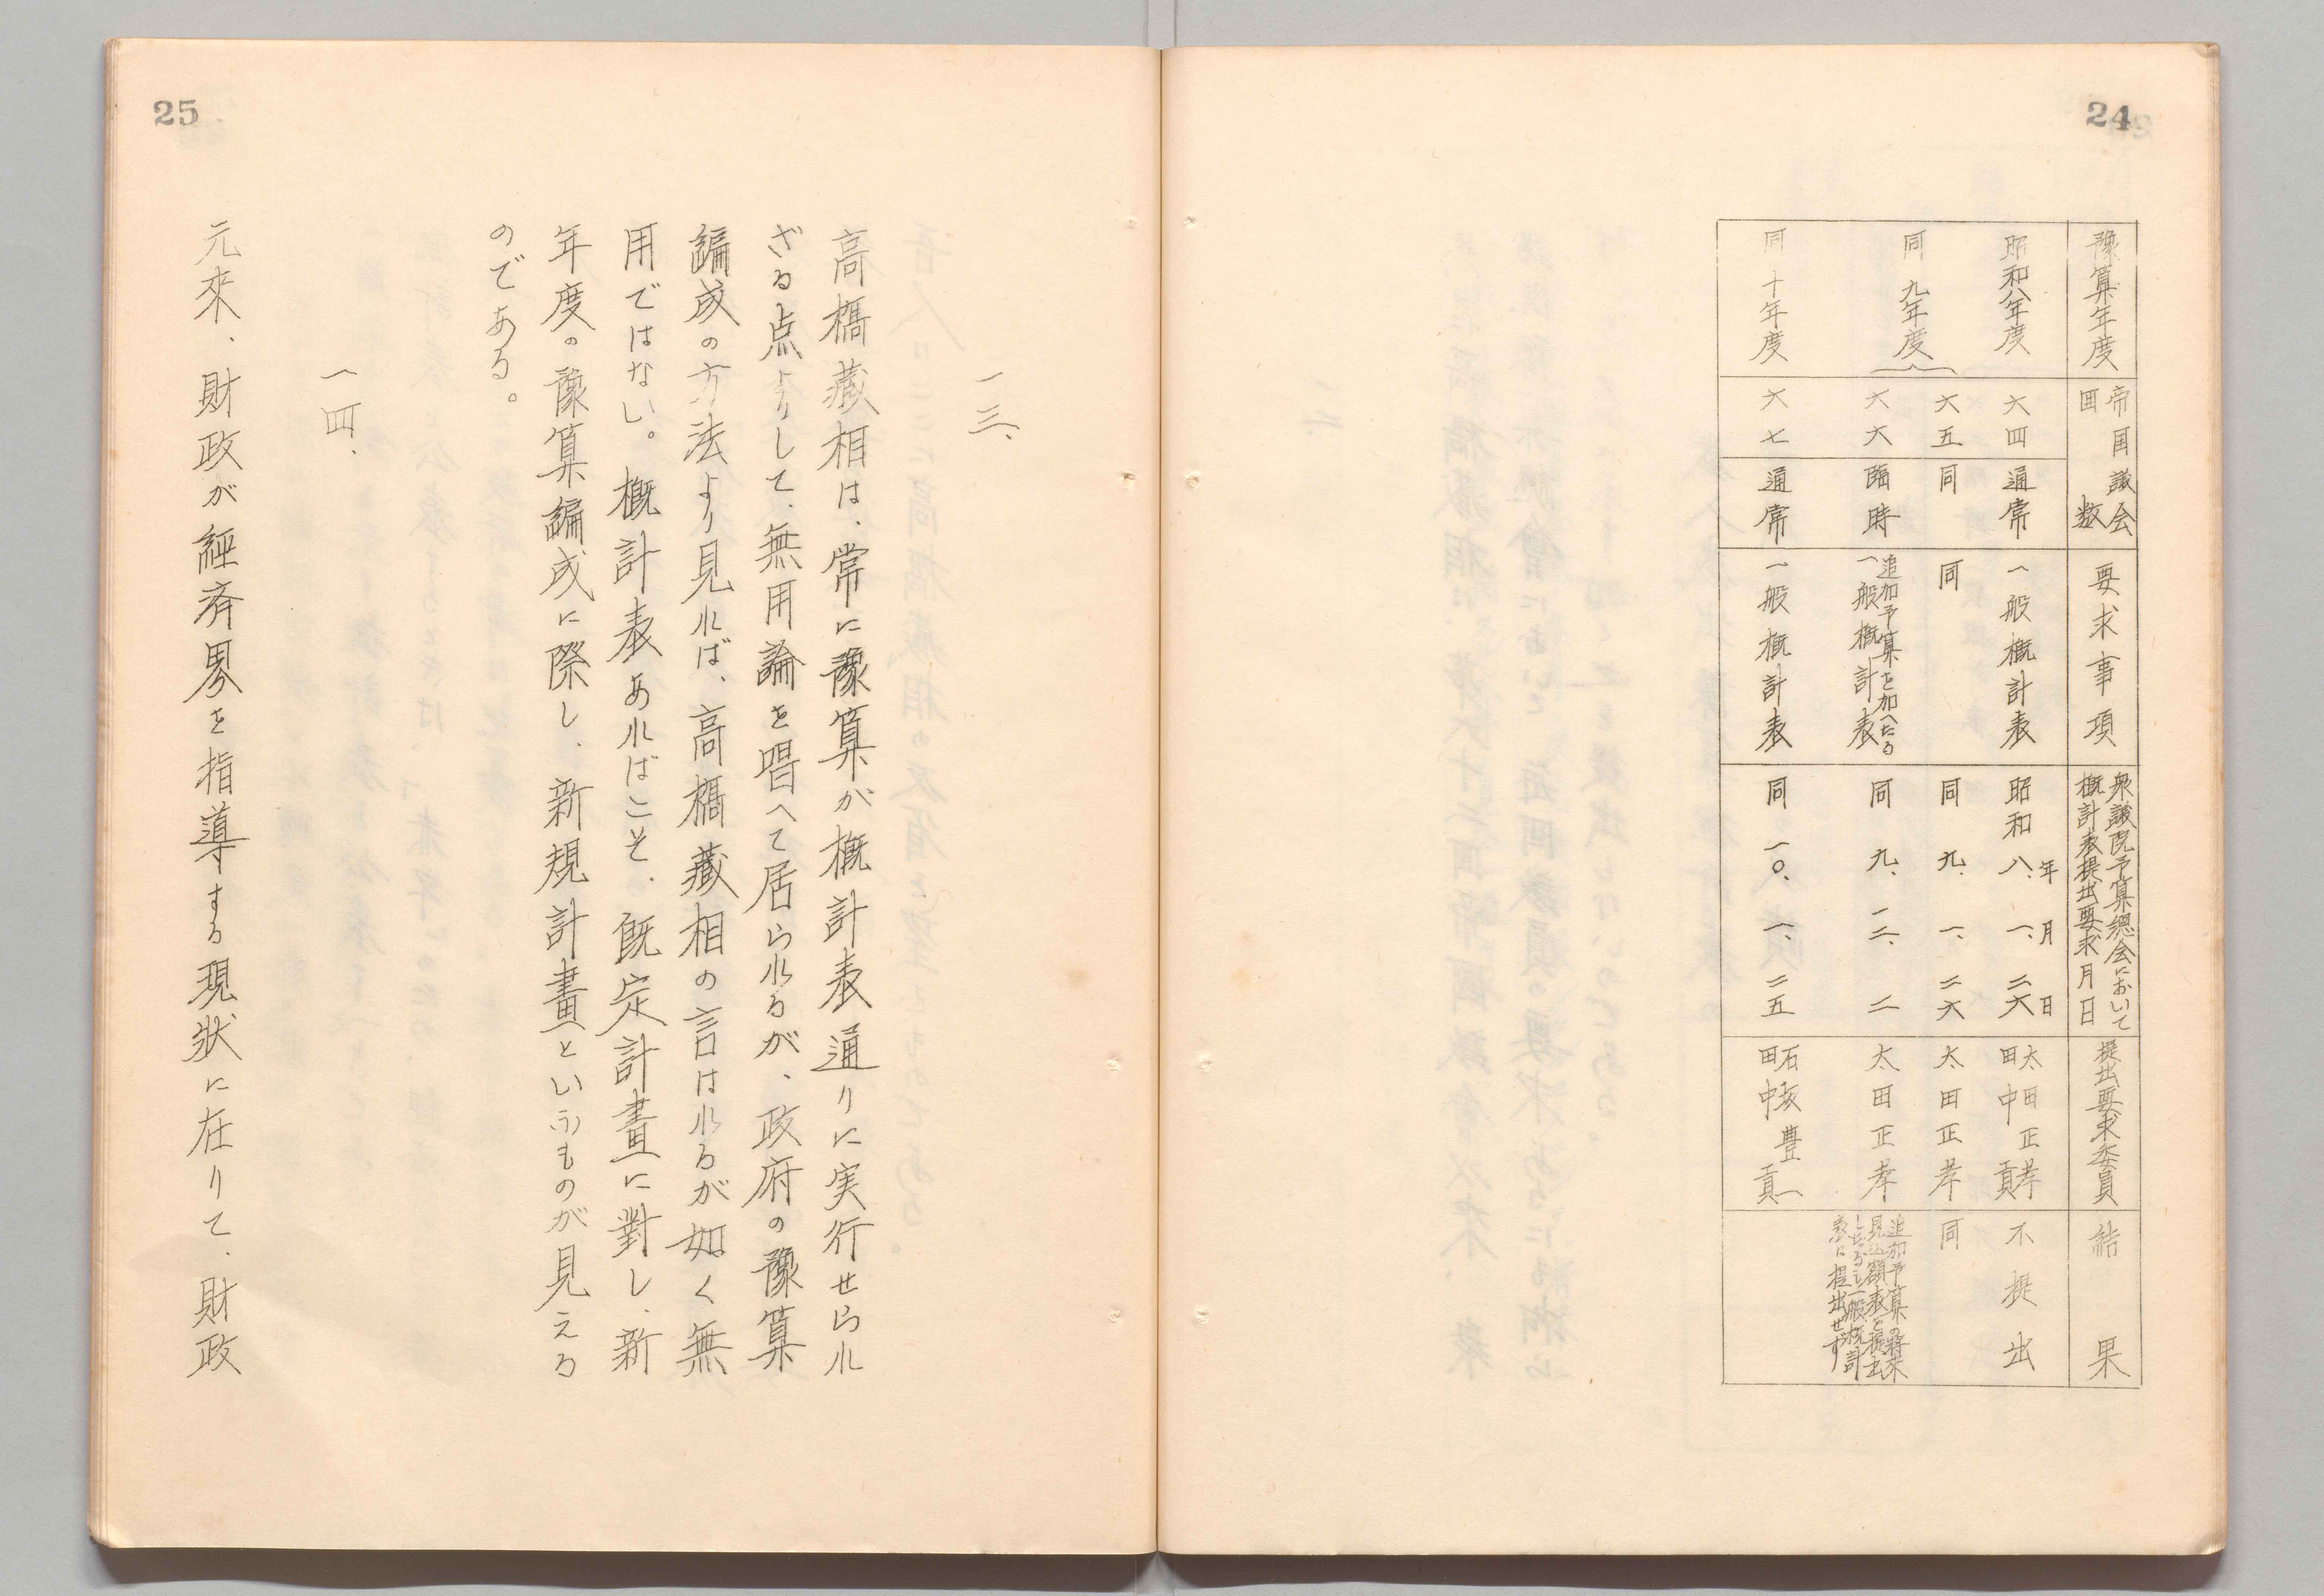 24
豫算年度
帝国議会
回数
要求事項
衆議院予算總会において
概計表提出要求月日
提出要求委員
結果
昭和八年度
六四
通常
一般概計表
昭和八年、一月、二六日
太田正孝
田中貢
不提出
同九年度
六五
同
同
同九、一、二六
太田正孝
同
六六
臨時
追加予算を加へたる
一般概計表
同九、一二、二
太田正孝
追加予算の将来
見込額表を提出
したるも一般概計
表は提出せず
同十年度
六七
通常
一般概計表
同一〇、一、二五
石坂豊一
田中貢
25
一三、
高橋藏相は、常に豫算が概計表通りに実行せられ
ざる点よりして、無用論を唱へて居られるが、政府の豫算
編成の方法より見れば、高橋藏相の言はれるが如く無
用ではない。概計表あればこそ、既定計畫に對し、新
年度の豫算編成に際し、新規計畫といふものが見える
のである。
一四、
元來、財政が経済界を指導する現狀に在りて、財政